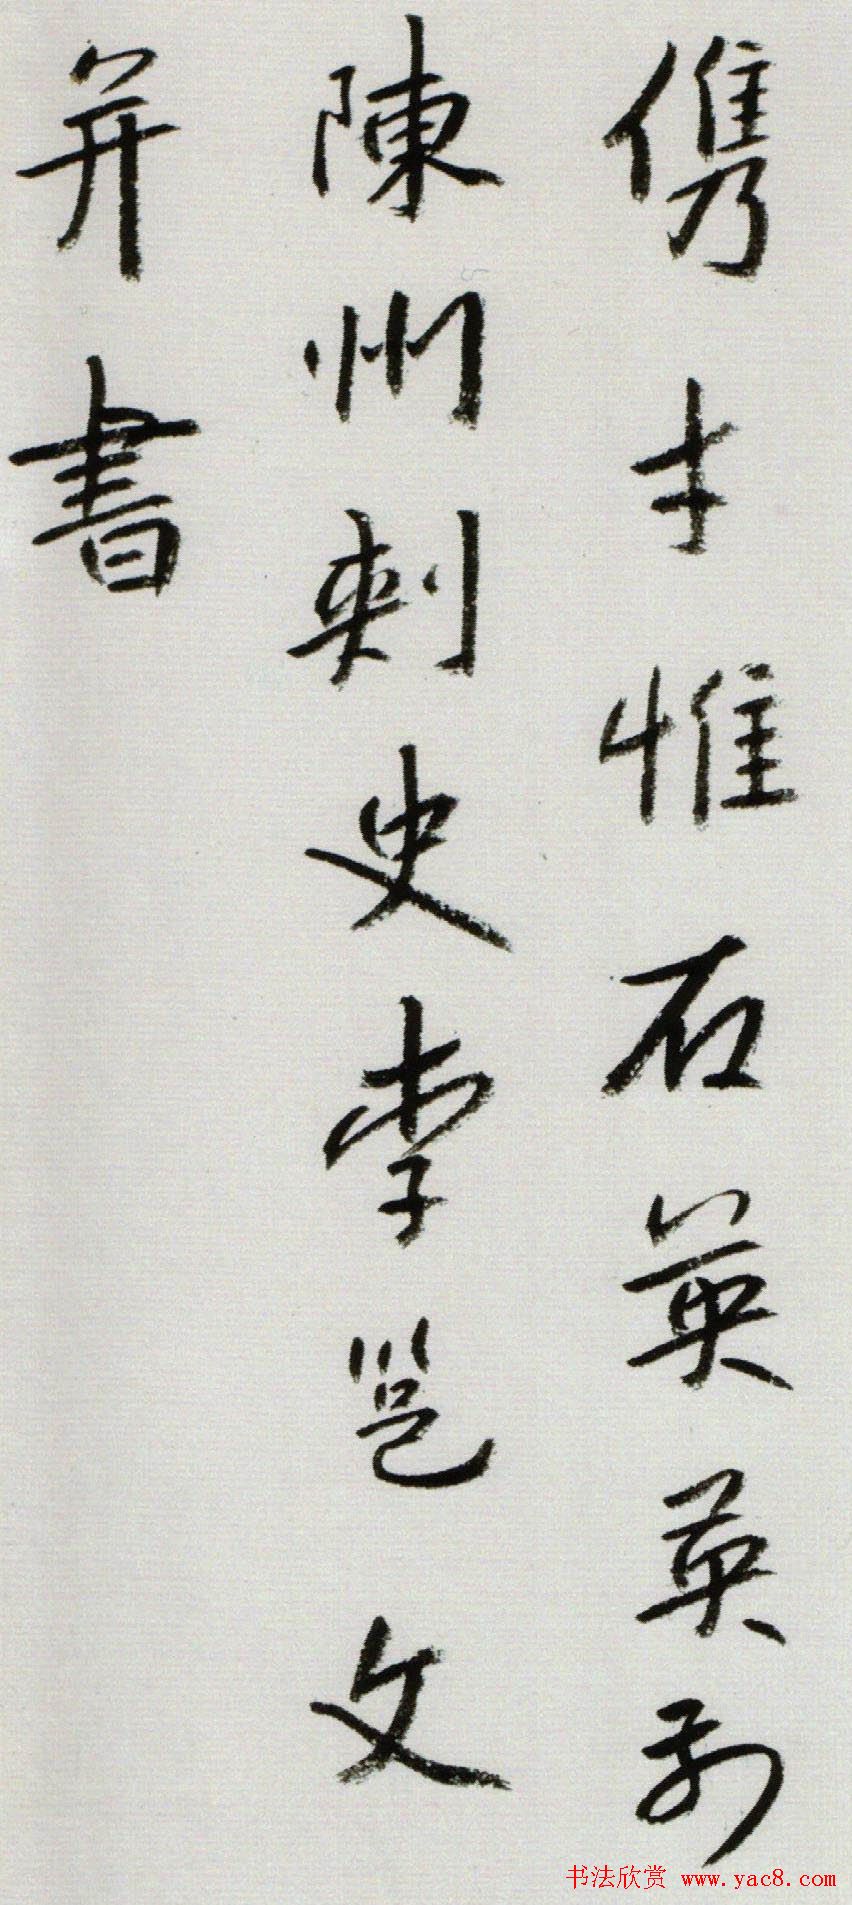 儁才惟石英英別
陳州刺史李邕文
并書
书法欣赏 www.yac8.com